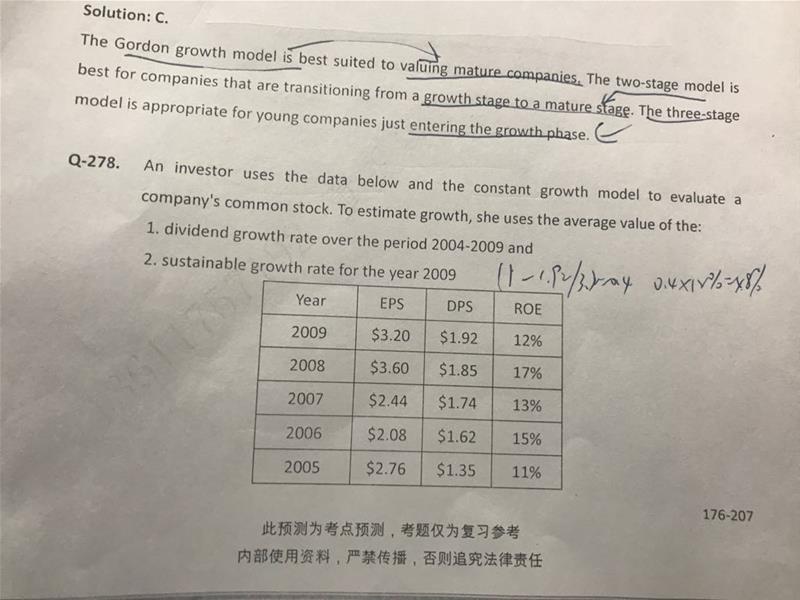 Solution: C.
The Gordon growth model is best suited to valuing mature companies. The two-stage model is
best for companies that are transitioning from a growth stage to a mature stage. The three-stage
model is appropriate for young companies just entering the growth phase.
Q-278. An investor uses the data below and the constant growth model to evaluate a
company's common stock. To estimate growth, she uses the average value of the:
1. dividend growth rate over the period 2004-2009 and
2. sustainable growth rate for the year 2009
Year EPS DPS ROE
2009 $3.20 $1.92 12%
2008 $3.60 $1.85 17%
2007 $2.44 $1.74 13%
2006 $2.08 $1.62 15%
2005 $2.76 $1.35 11%
176-207
此预测为考点预测，考题仅为复习参考
内部使用资料，严禁传播，否则追究法律责任